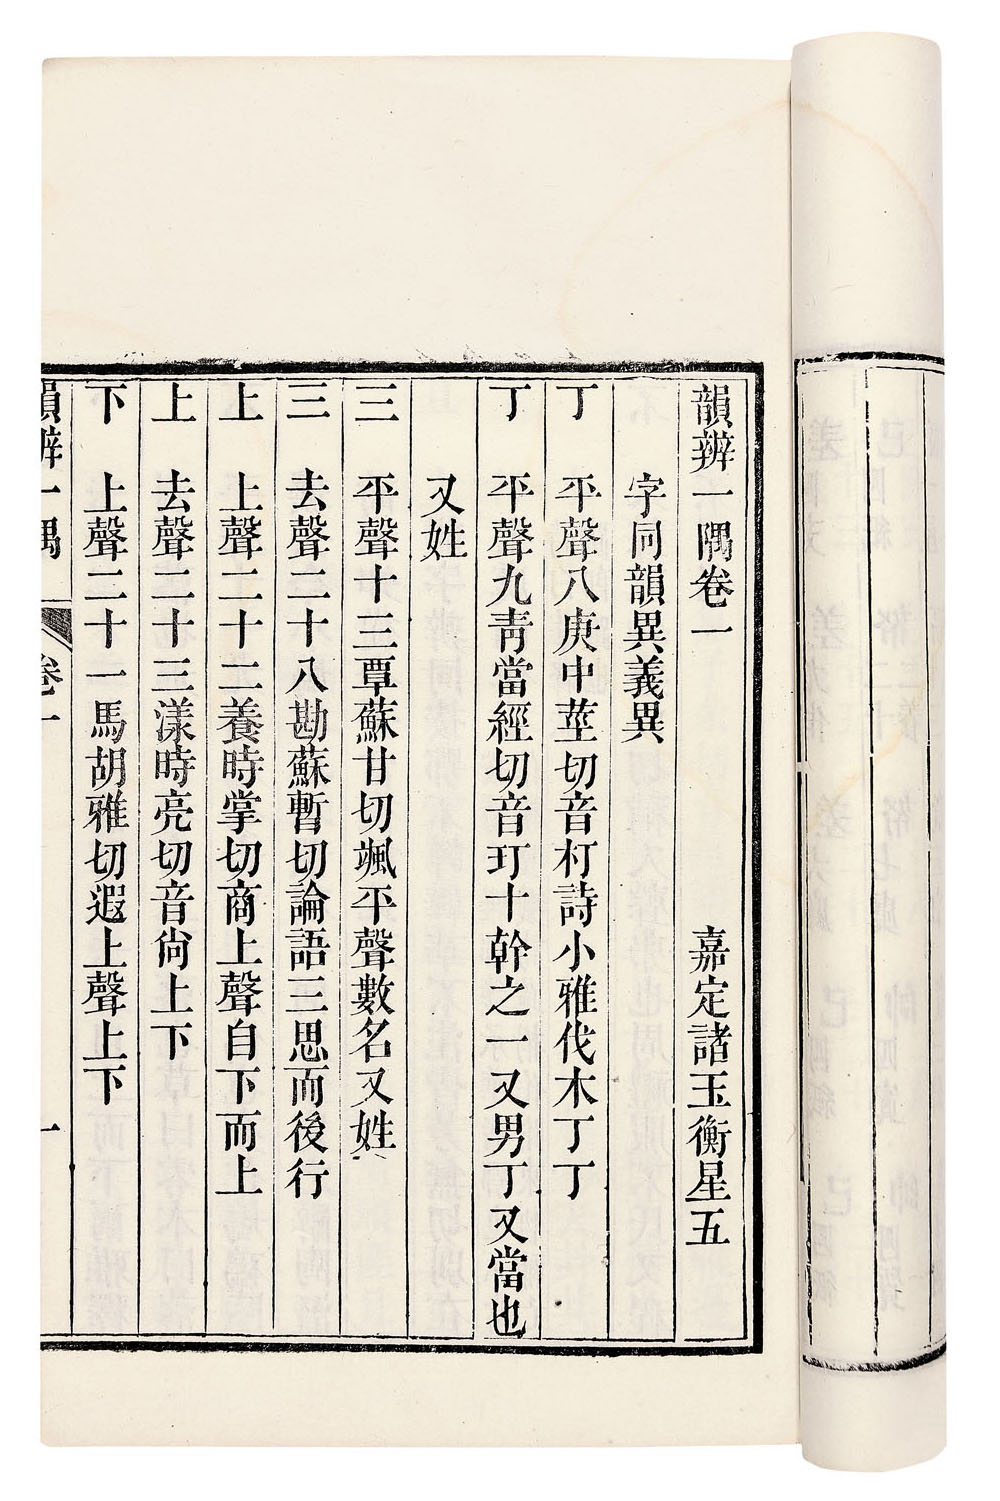 韻辨一隅卷一 嘉定諸玉衡星五
字同韻異義異
丁 平聲八庚中莖切音朾詩小雅伐木丁丁
丁 平聲九靑當經切音玎十幹之一又男丁又當也
又姓
三 平聲十三覃蘇甘切颯平聲數名又姓
三 去聲二十八勘蘇暫切論語三思而後行
上 上聲二十二養時掌切商上聲自下而上
上 去聲二十三漾時亮切音尙上下
下 上聲二十一馬胡雅切遐上聲上下
韻辨一隅 卷一 一